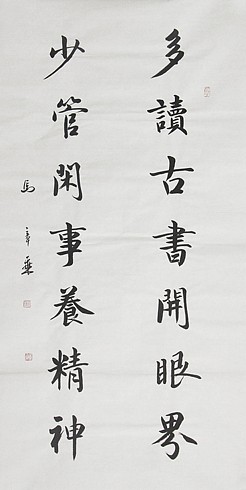 多讀古書開眼界
少管閑事養精神
馬